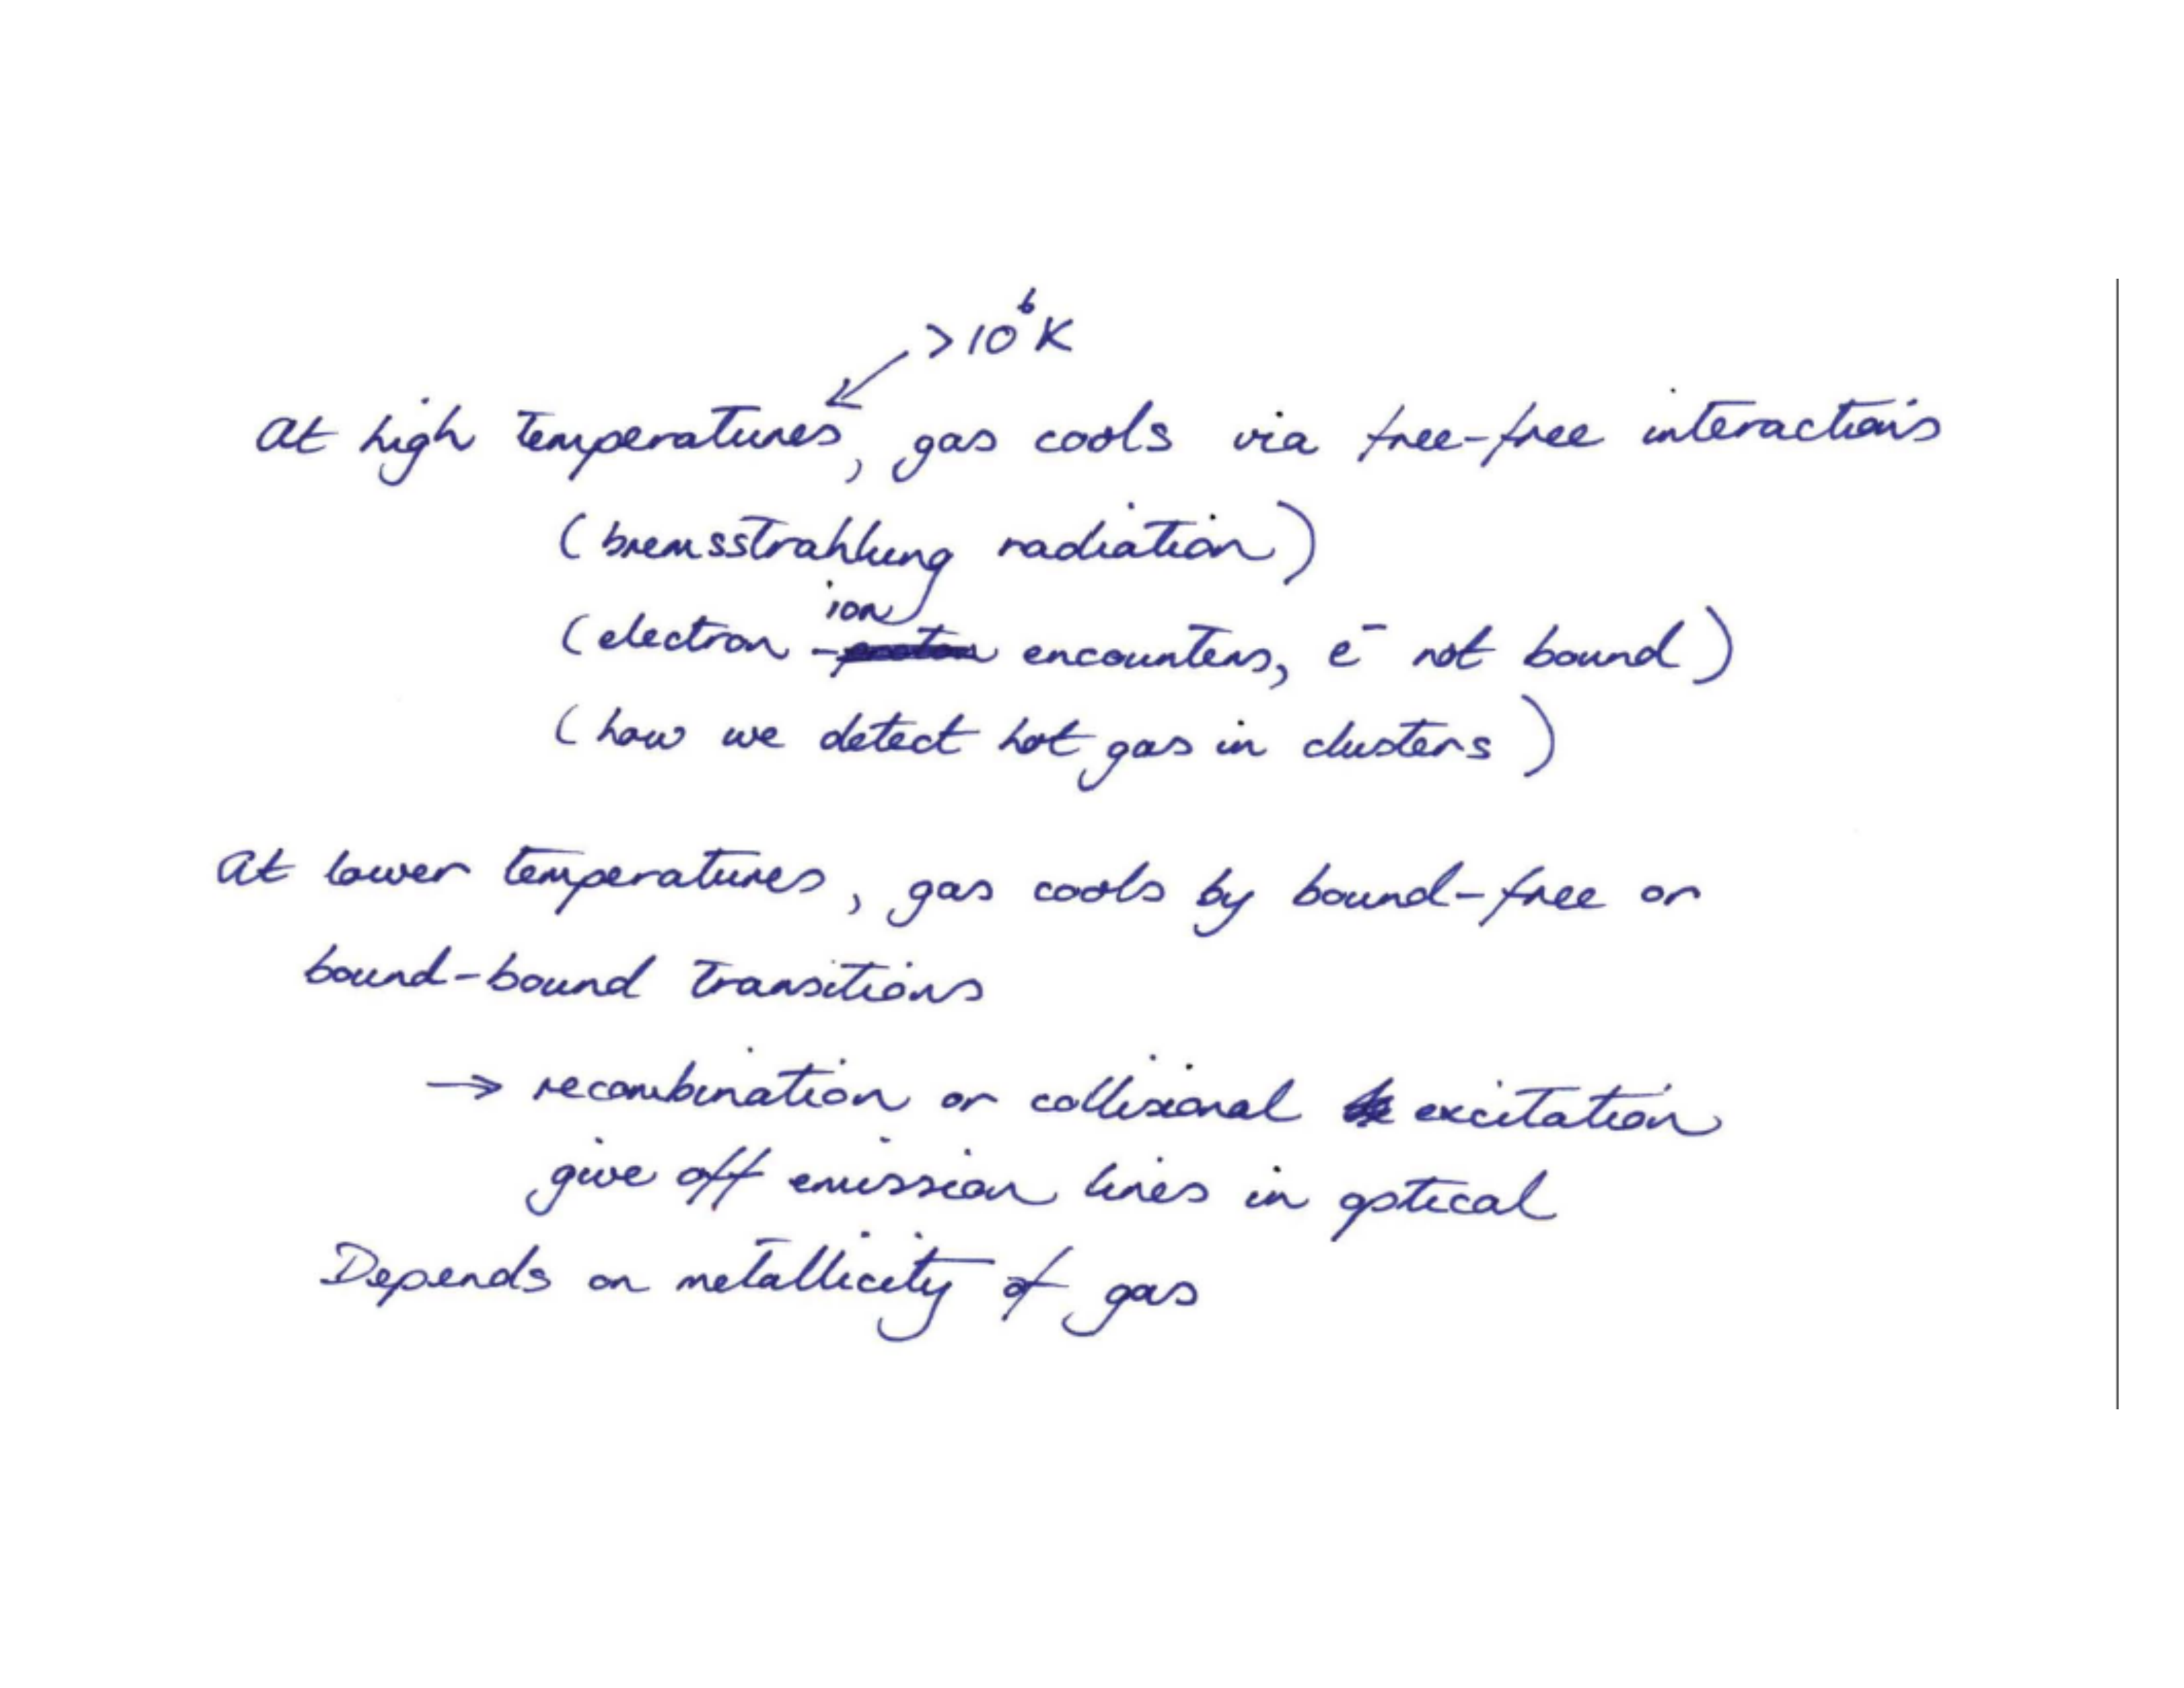 >10⁶K
At high temperatures, gas cools via free-free interactions
(bremsstrahlung radiation)
ion
(electron - encounters, e⁻ not bound)
(how we detect hot gas in clusters)
At lower temperatures, gas cools by bound-free or
bound-bound transitions
→ recombination or collisional excitation
give off emission lines in optical
Depends on metallicity of gas